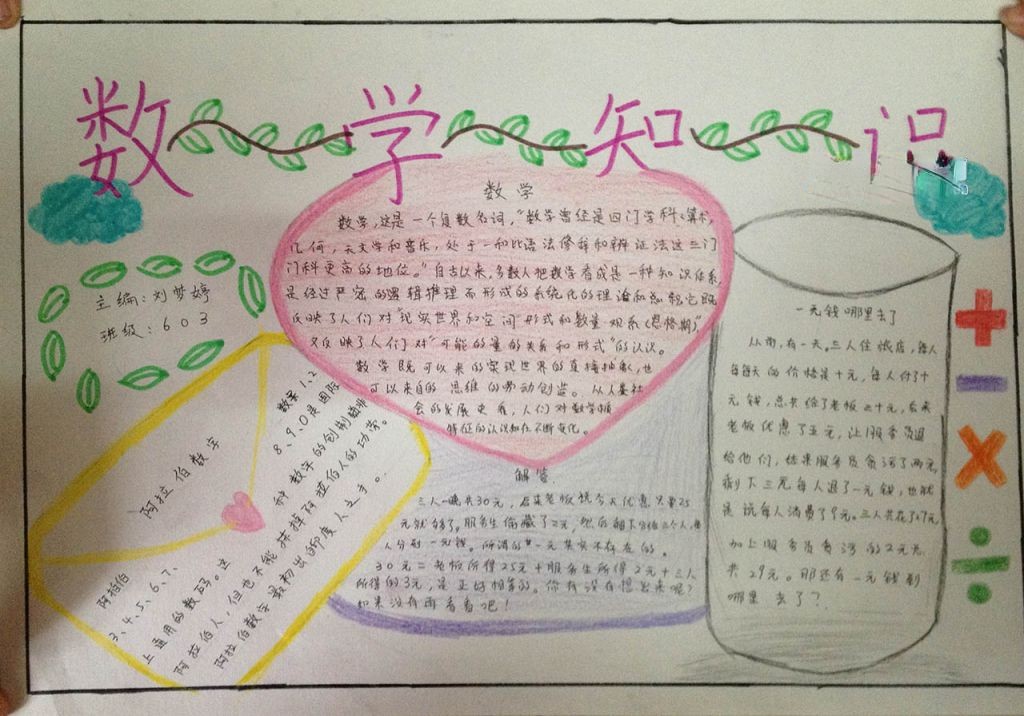 数学知识
主编：刘梦婷
班级：603
数学
数学，这是一个复数名词，“数学曾经是四门学科：算术，
几何，天文学和音乐，处于一和比语法修辞和辩证法这三门
门科更高的地位。”自古以来，多数人把数学看成是一种知识体系，
是经过严密的逻辑推理而形成的系统化的理论和，它既
反映了人们对“现实世界和空间形式和数量关系（恩格斯）”
又反映了人们对“可能的量的关系和形式”的认识。
数学既可以来的实现世界的直接抽象，也
可以来自的思维的劳动创造。从人类社
会的发展史看，人们对数学
特征的认识和在不断变化。
阿拉伯数字
阿拉伯数字1、2、
3、4、5、6、7、8、9、0是国际
上通用的数码。这种数字的创制
阿拉伯人，但也不能抹掉阿拉伯人的功劳。
阿拉伯数字最初出的印度人之手。
解答
三人一晚共30元，后来老板说今天优惠只要25
元就够了。服务生偷藏了2元，然后
人分别一元钱。所谓的一元其实不存在的。
30元＝老板所得25元＋服务生所得2元＋三人
所得的3元，是正好相等的。你有没有想出来呢？
如果没有再看看吧！
一元钱哪里去了
从前，有一天。三人住饭店，每人
每每天的价格是十元，每人付了十
元钱，总共给了老板三十元，后来
老板优惠了五元，让服务员退
给他们，结果服务员贪污了两元，
剩下三元每人退了一元钱，也就
是说每人消费了9元。三人共花了27元
加上服务员贪污的2元总
共29元。那还有一元钱到
哪里去了？
＋
－
×
÷